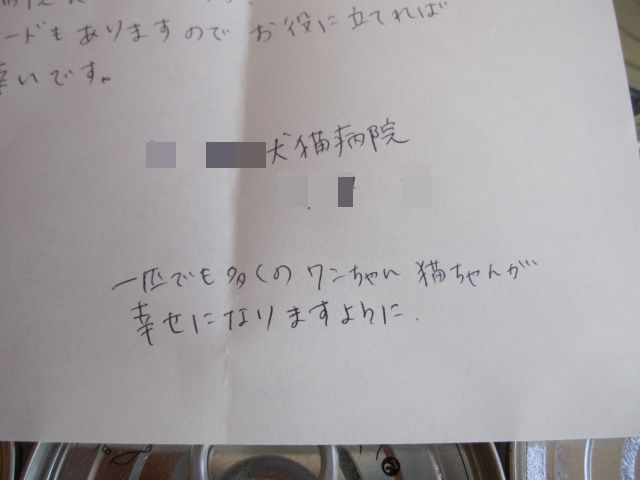 ードもありますので お役に立てれば
幸いです。
犬猫病院
一匹でも多くのワンちゃん 猫ちゃんが
幸せになりますように.